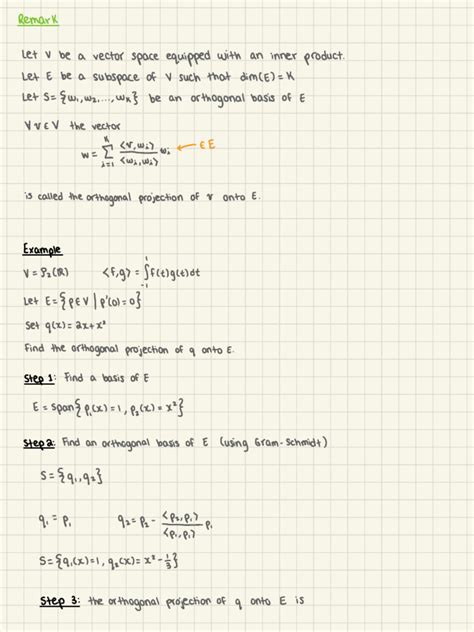 Remark
Let V be a vector space equipped with an inner product.
Let E be a subspace of V such that dim(E) = K
Let S = {w₁, w₂, ..., wₖ} be an orthogonal basis of E
∀ v ∈ V the vector
w = ∑_{i=1}^{K} <v, wᵢ>/<wᵢ, wᵢ> wᵢ ← ∈ E
is called the orthogonal projection of v onto E.
Example
V = P₂(ℝ) <f,g> = ∫_{-1}^{1} f(t)g(t)dt
Let E = {p ∈ V | p'(0) = 0}
Set q(x) = 2x + x²
Find the orthogonal projection of q onto E.
Step 1: Find a basis of E
E = span{p₁(x) = 1, p₂(x) = x²}
Step 2: Find an orthogonal basis of E (using Gram-Schmidt)
S = {q₁, q₂}
q₁ = p₁ q₂ = p₂ - <p₂, p₁>/<p₁, p₁> p₁
S = {q₁(x) = 1, q₂(x) = x² - 1/3}
Step 3: the orthogonal projection of q onto E is